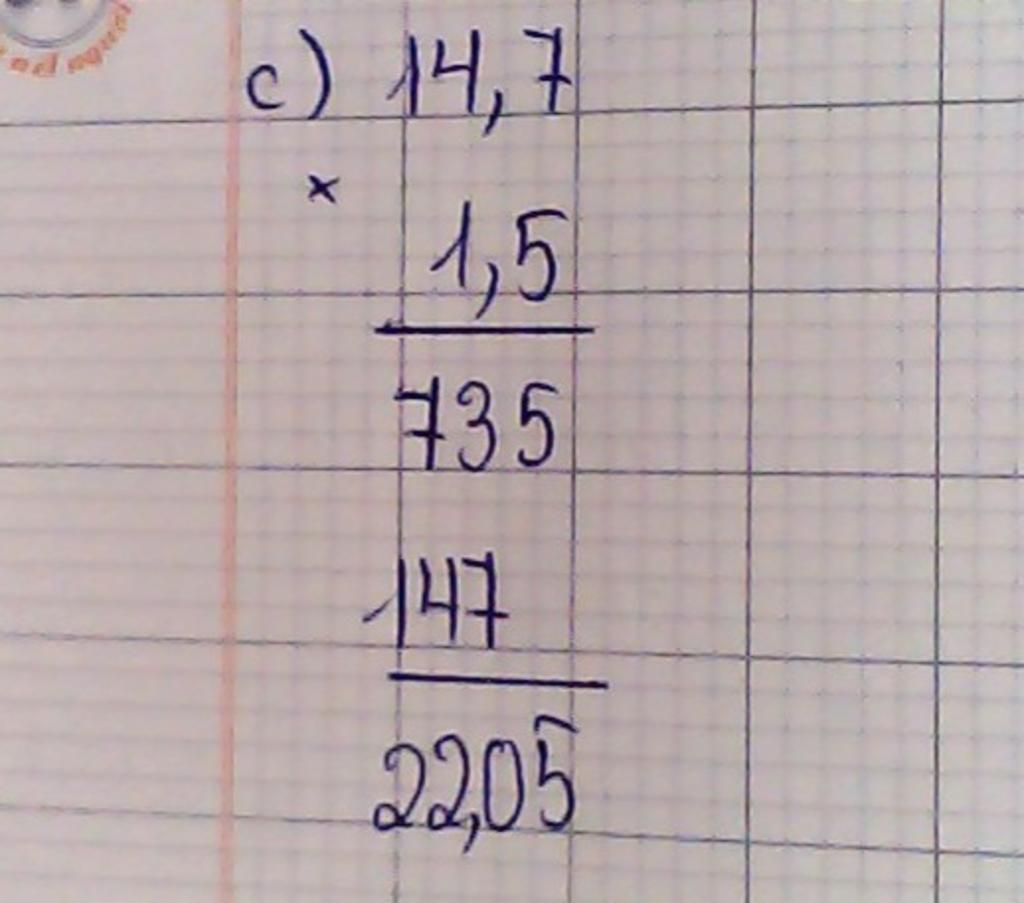 c) 14,7
×
1,5
735
147
22,05